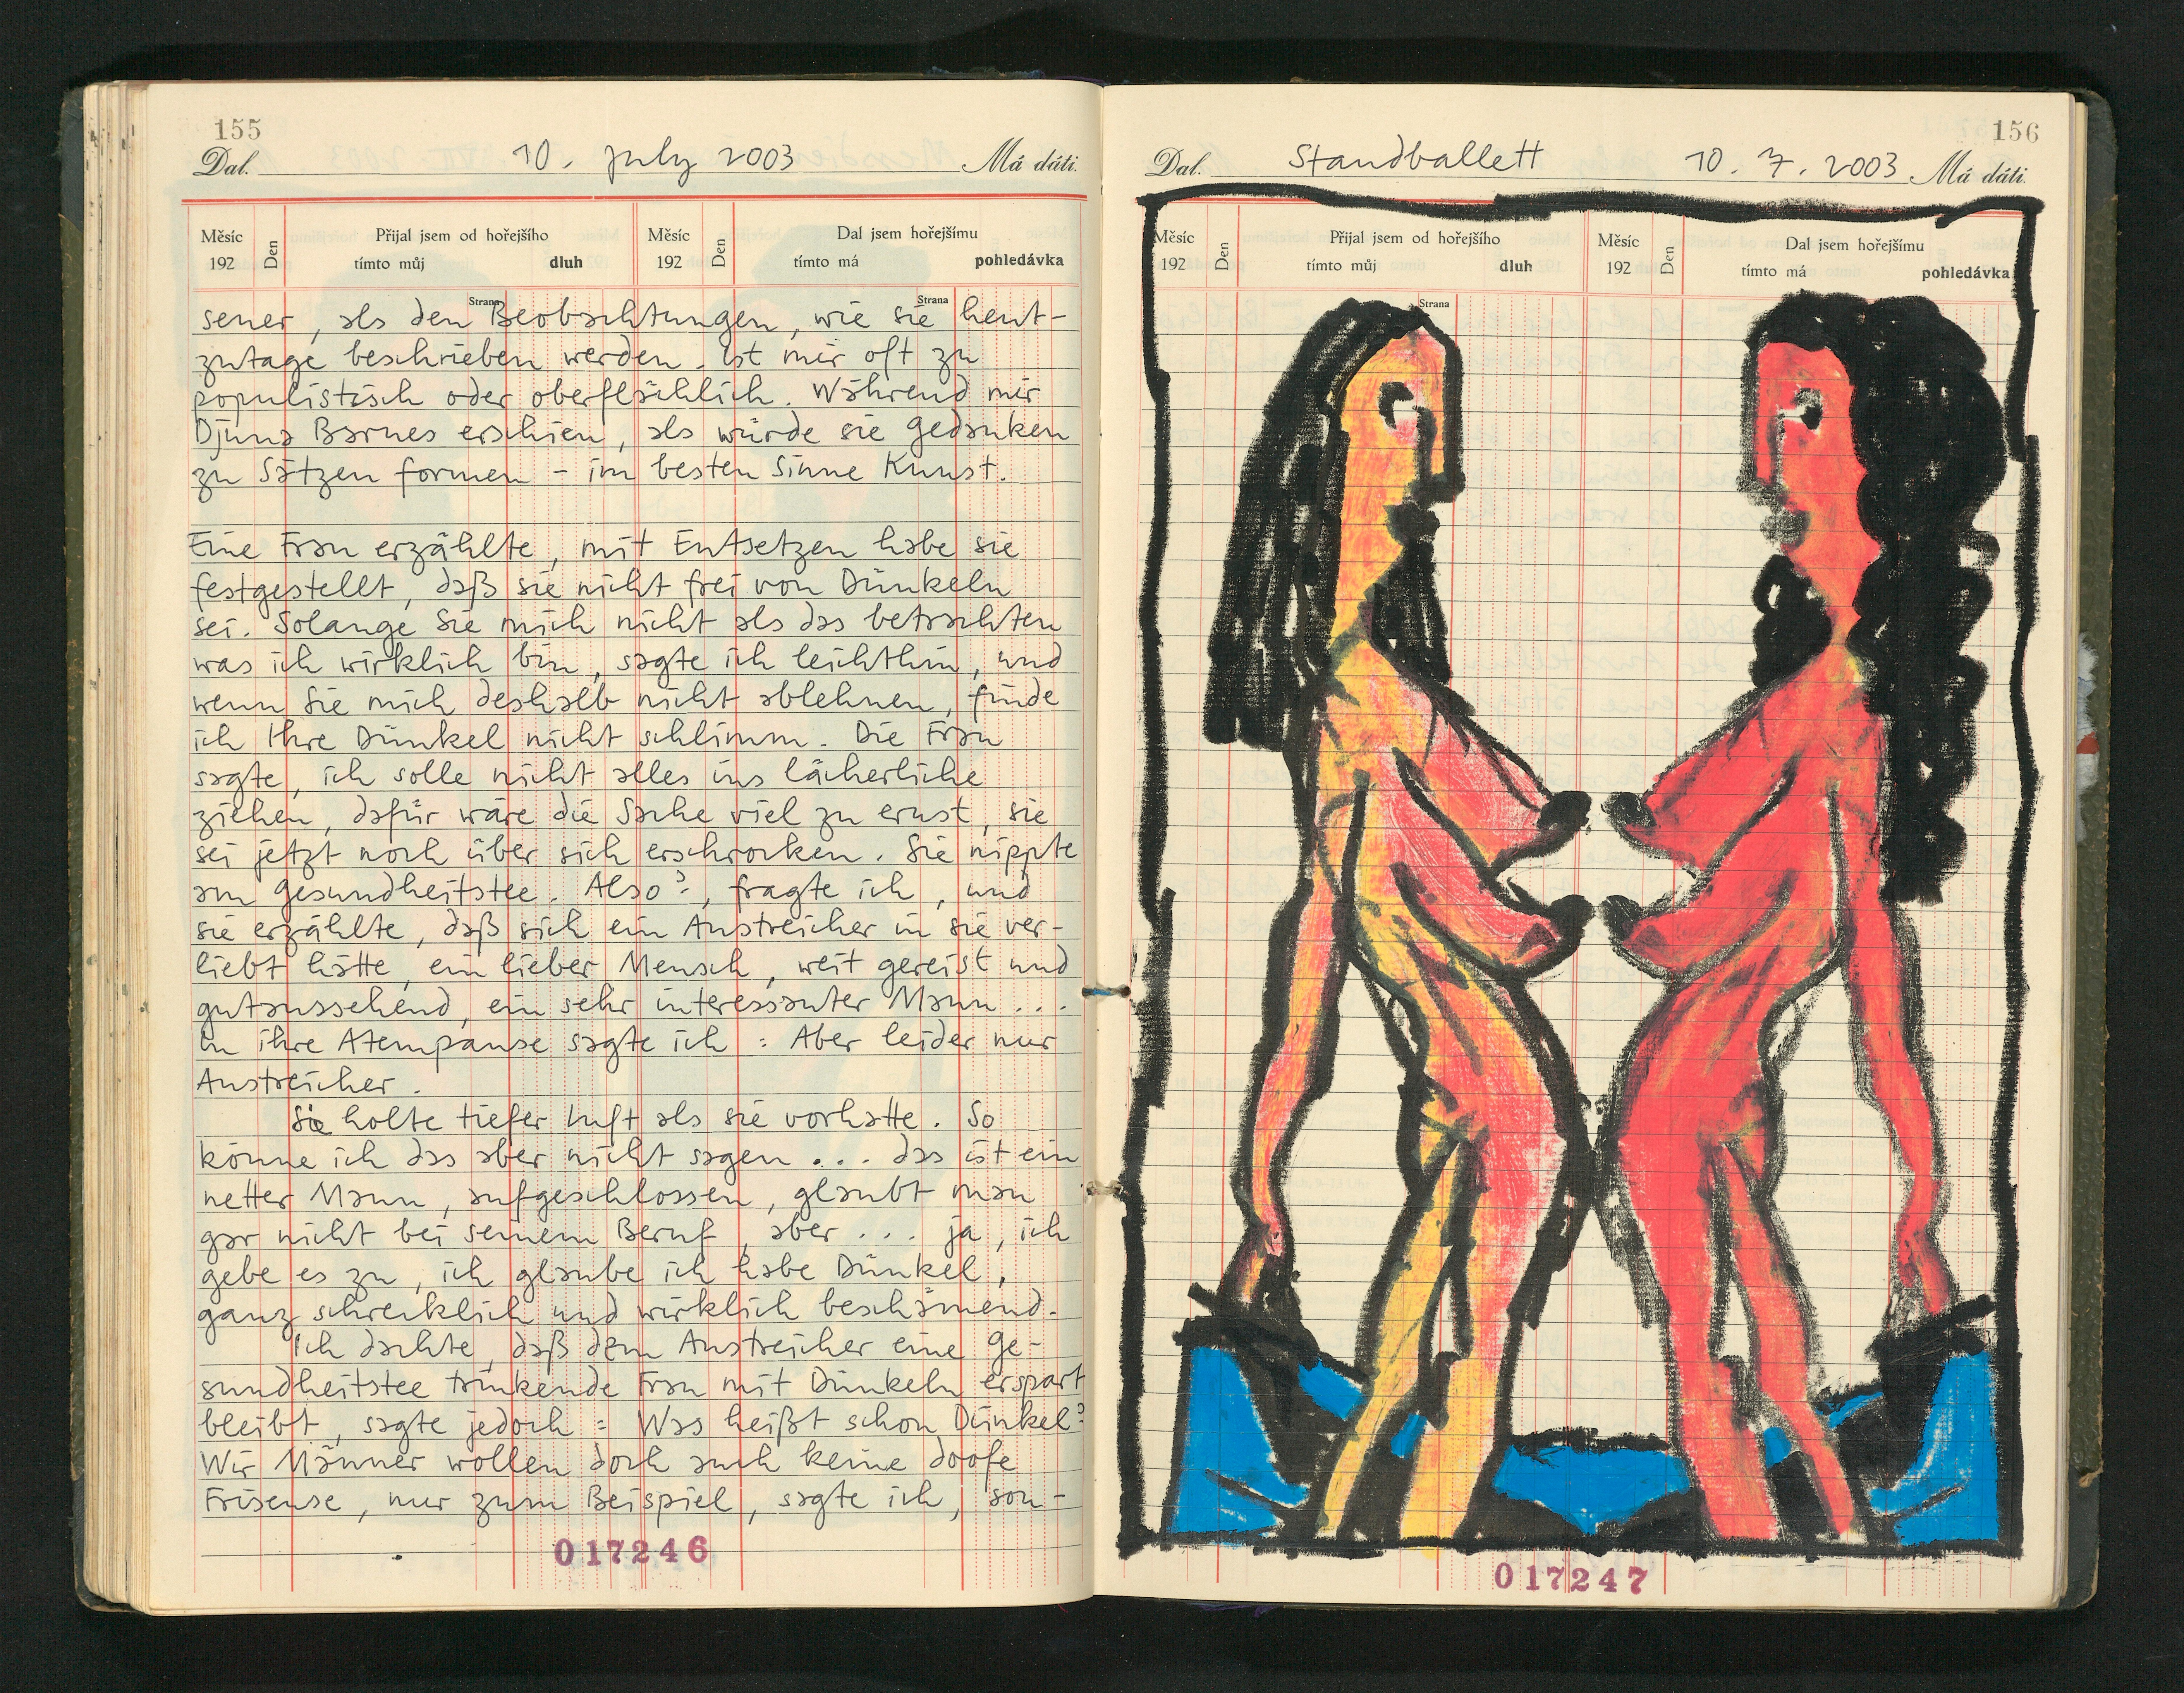 155
Dal. 10. July 2003 Má dáti.
Měsíc 192 Den Přijal jsem od hořejšího tímto můj dluh Měsíc 192 Den Dal jsem hořejšímu tímto má pohledávka
Strana Strana
sener, als den Beobachtungen, wie sie heut-
zutage beschrieben werden. Ist mir oft zu
populistisch oder oberflächlich. Während mir
Djuna Barnes erschien, als würde sie Gedanken
zu Sätzen formen - im besten Sinne Kunst.
Eine Frau erzählte, mit Entsetzen habe sie
festgestellt, daß sie nicht frei von Dünkeln
sei. Solange Sie mich nicht als das betrachten
was ich wirklich bin, sagte ich leichthin, und
wenn Sie mich deshalb nicht ablehnen, finde
ich Ihre Dünkel nicht schlimm. Die Frau
sagte, ich solle nicht alles ins lächerliche
ziehen, dafür wäre die Sache viel zu ernst, sie
sei jetzt noch über sich erschrocken. Sie nippte
am Gesundheitstee. Also?, fragte ich, und
sie erzählte, daß sich ein Anstreicher in sie ver-
liebt hätte, ein lieber Mensch, weit gereist und
gutaussehend, ein sehr interessanter Mann...
In ihre Atempause sagte ich: Aber leider nur
Anstreicher.
Sie holte tiefer Luft als sie vorhatte. So
könne ich das aber nicht sagen... das ist ein
netter Mann, aufgeschlossen, glaubt man
gar nicht bei seinem Beruf, aber... ja, ich
gebe es zu, ich glaube ich habe Dünkel,
ganz schrecklich und wirklich beschämend.
Ich dachte, daß dem Anstreicher eine Ge-
sundheitstee trinkende Frau mit Dünkeln erspart
bleibt, sagte jedoch: Was heißt schon Dünkel?
Wir Männer wollen doch auch keine doofe
Friseuse, nur zum Beispiel, sagte ich, son-
017246
156
Dal. Standballett 10. 7. 2003 Má dáti.
Měsíc 192 Den Přijal jsem od hořejšího tímto můj dluh Měsíc 192 Den Dal jsem hořejšímu tímto má pohledávka
Strana
017247